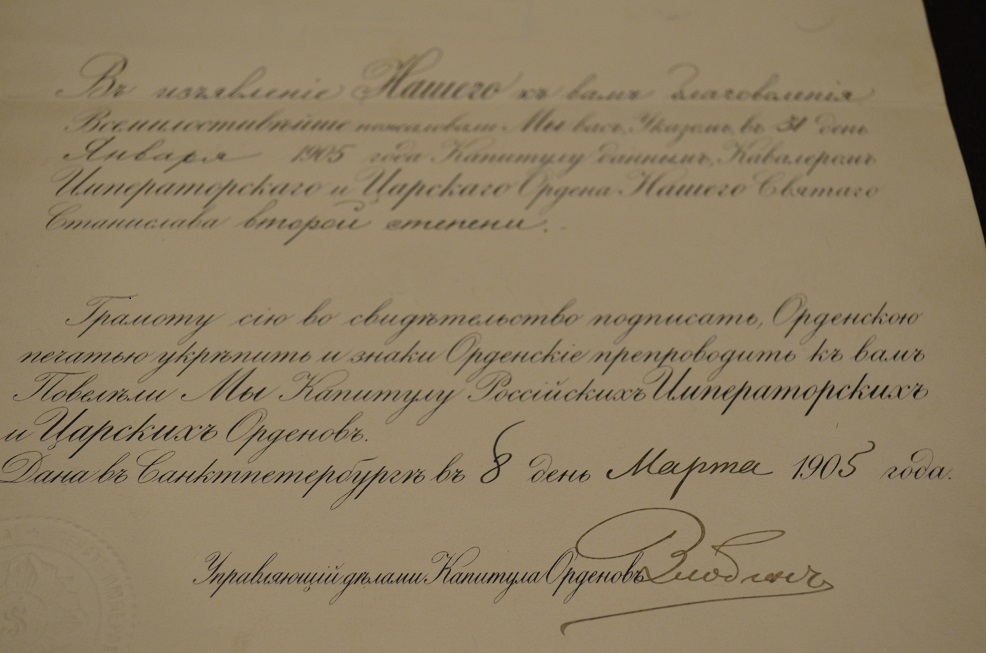 Въ изъявленіе Нашего къ вамъ благоволенія
Всемилостивѣйше пожаловали Мы васъ, Указомъ, въ 31 день
Января 1905 года Капитулу даннымъ, Кавалеромъ
Императорскаго и Царскаго Ордена Нашего Святаго
Станислава второй степени.
Грамоту сію во свидѣтельство подписать, Орденскою
печатью укрѣпить и знаки Орденскіе препроводить къ вамъ
Повелѣли Мы Капитулу Россійскихъ Императорскихъ
и Царскихъ Орденовъ.
Дана въ Санктпетербургѣ въ 8 день Марта 1905 года.
Управляющій дѣлами Капитула Орденовъ